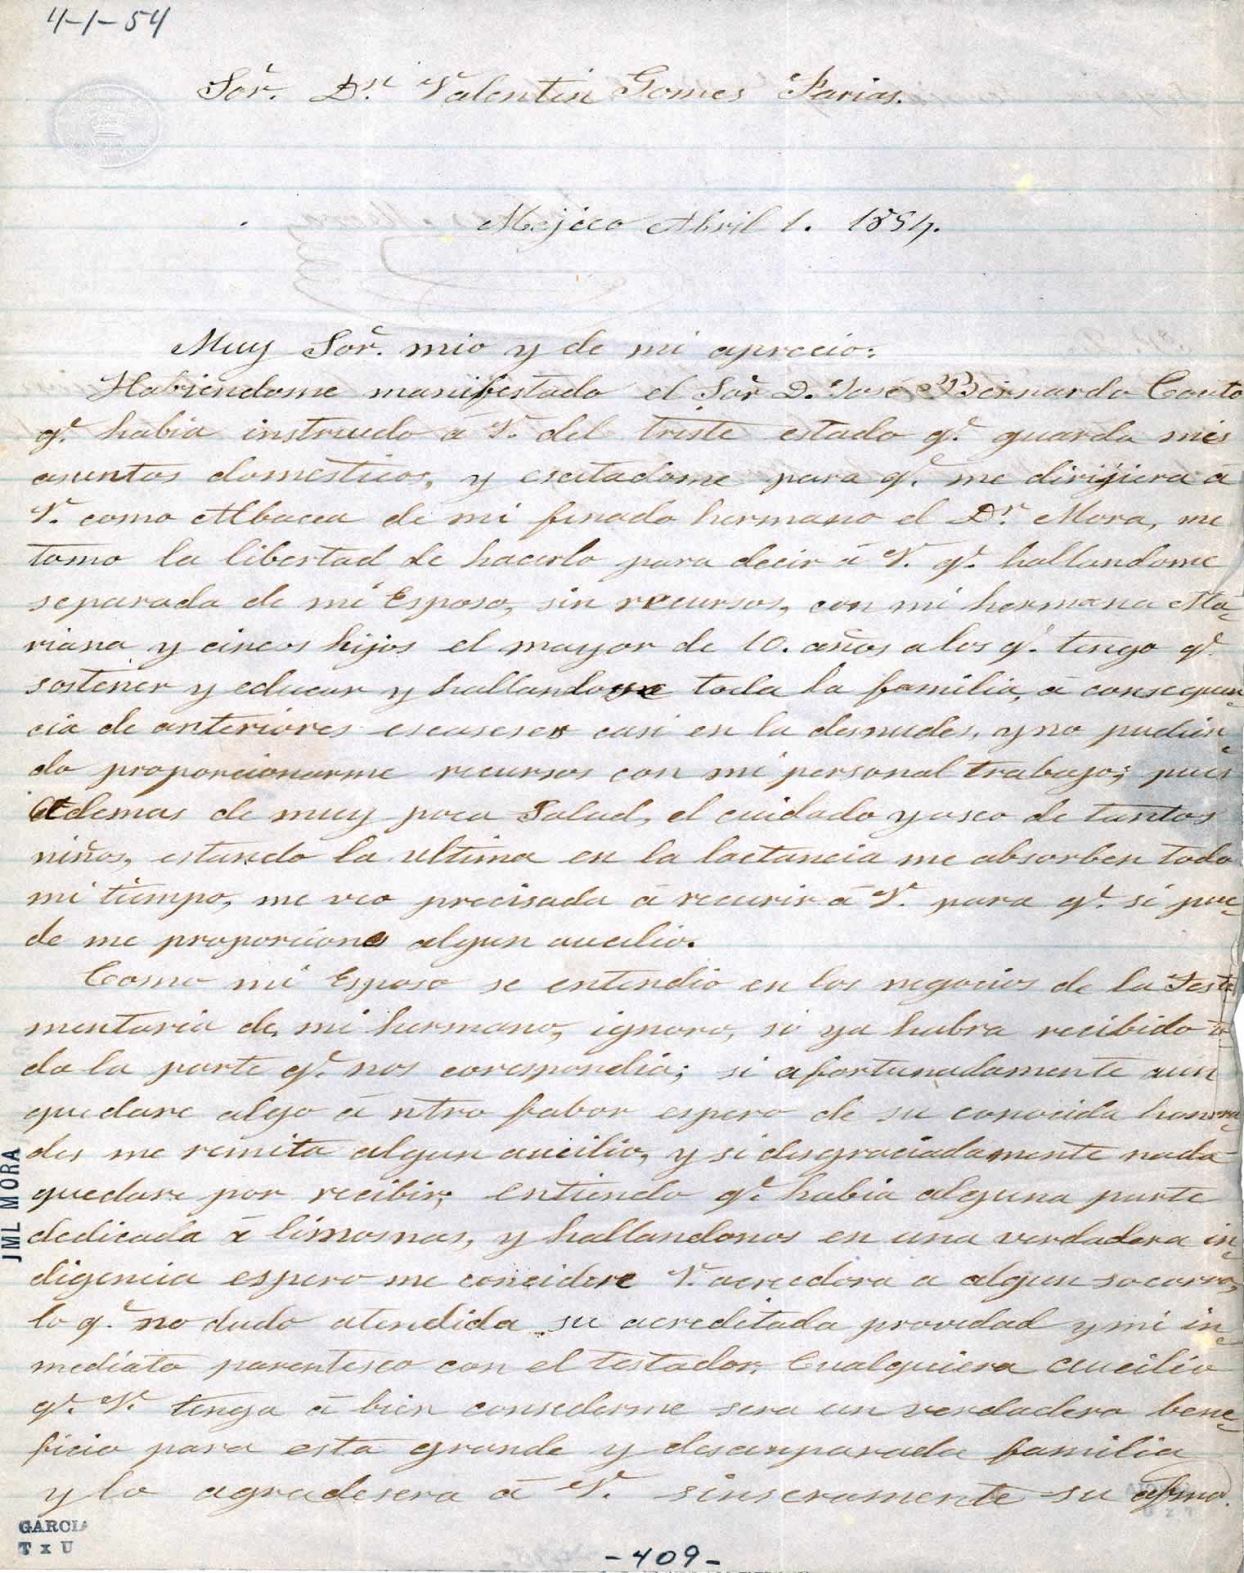 4-1-54
Sor. Dn. Valentin Gomes Farias.
Mejico Abril 1. 1854.
Muy Sor. mio y de mi aprecio:
Habiendome manifestado el Sor. D. Jose Bernardo Couto
q.e habia instruido á V. del triste estado q.e guarda mis
asuntos domesticos, y esitadome para q.e me dirijiera á
V. como Albacea de mi finado hermano el Dr. Mora, me
tomo la libertad de hacerlo para decir á V. q.e hallandome
separada de mi Esposo, sin recursos, con mi hermana Ma-
riana y cincos hijos el mayor de 10. años a los q.e tengo q.e
sostener y educar y hallandose toda la familia, á consequen-
cia de anteriores escaseses casi en la desnudes, y no pudien-
do proporcionarme recursos con mi personal trabajo; pues
Ademas de muy poca Salud, el cuidado y aseo de tantos
niños, estando la ultima en la lactancia me absorben todo
mi tiempo, me veo precisada á recurir á V. para q.e si pue-
de me proporcione algun aucilio.
Como mi Esposo se entendio en los negocios de la Testa
mentaria de mi hermano, ignoro, si ya habra recibido to
da la parte q.e nos corespondia; si afortunadamente aun
quedare algo á ntro fabor espero de su conocida honra-
des me remita algun aucilio, y si desgraciadamente nada
quedare por recibir, entiendo q.e habia alguna parte
dedicada á limosnas, y hallandonos en una verdadera in-
digencia espero me concidere V. acredora a algun socorro,
lo q.e no dudo atendida su acreditada provedad y mi in-
mediato parentesco con el testador. Cualquiera aucilio
q.e V. tenga á bien consederme sera un verdadero bene-
ficio para esta grande y desamparada familia
y lo agradesera á V. sinseramente su afma.
JML MORA
GARCIA
T x U
-409-